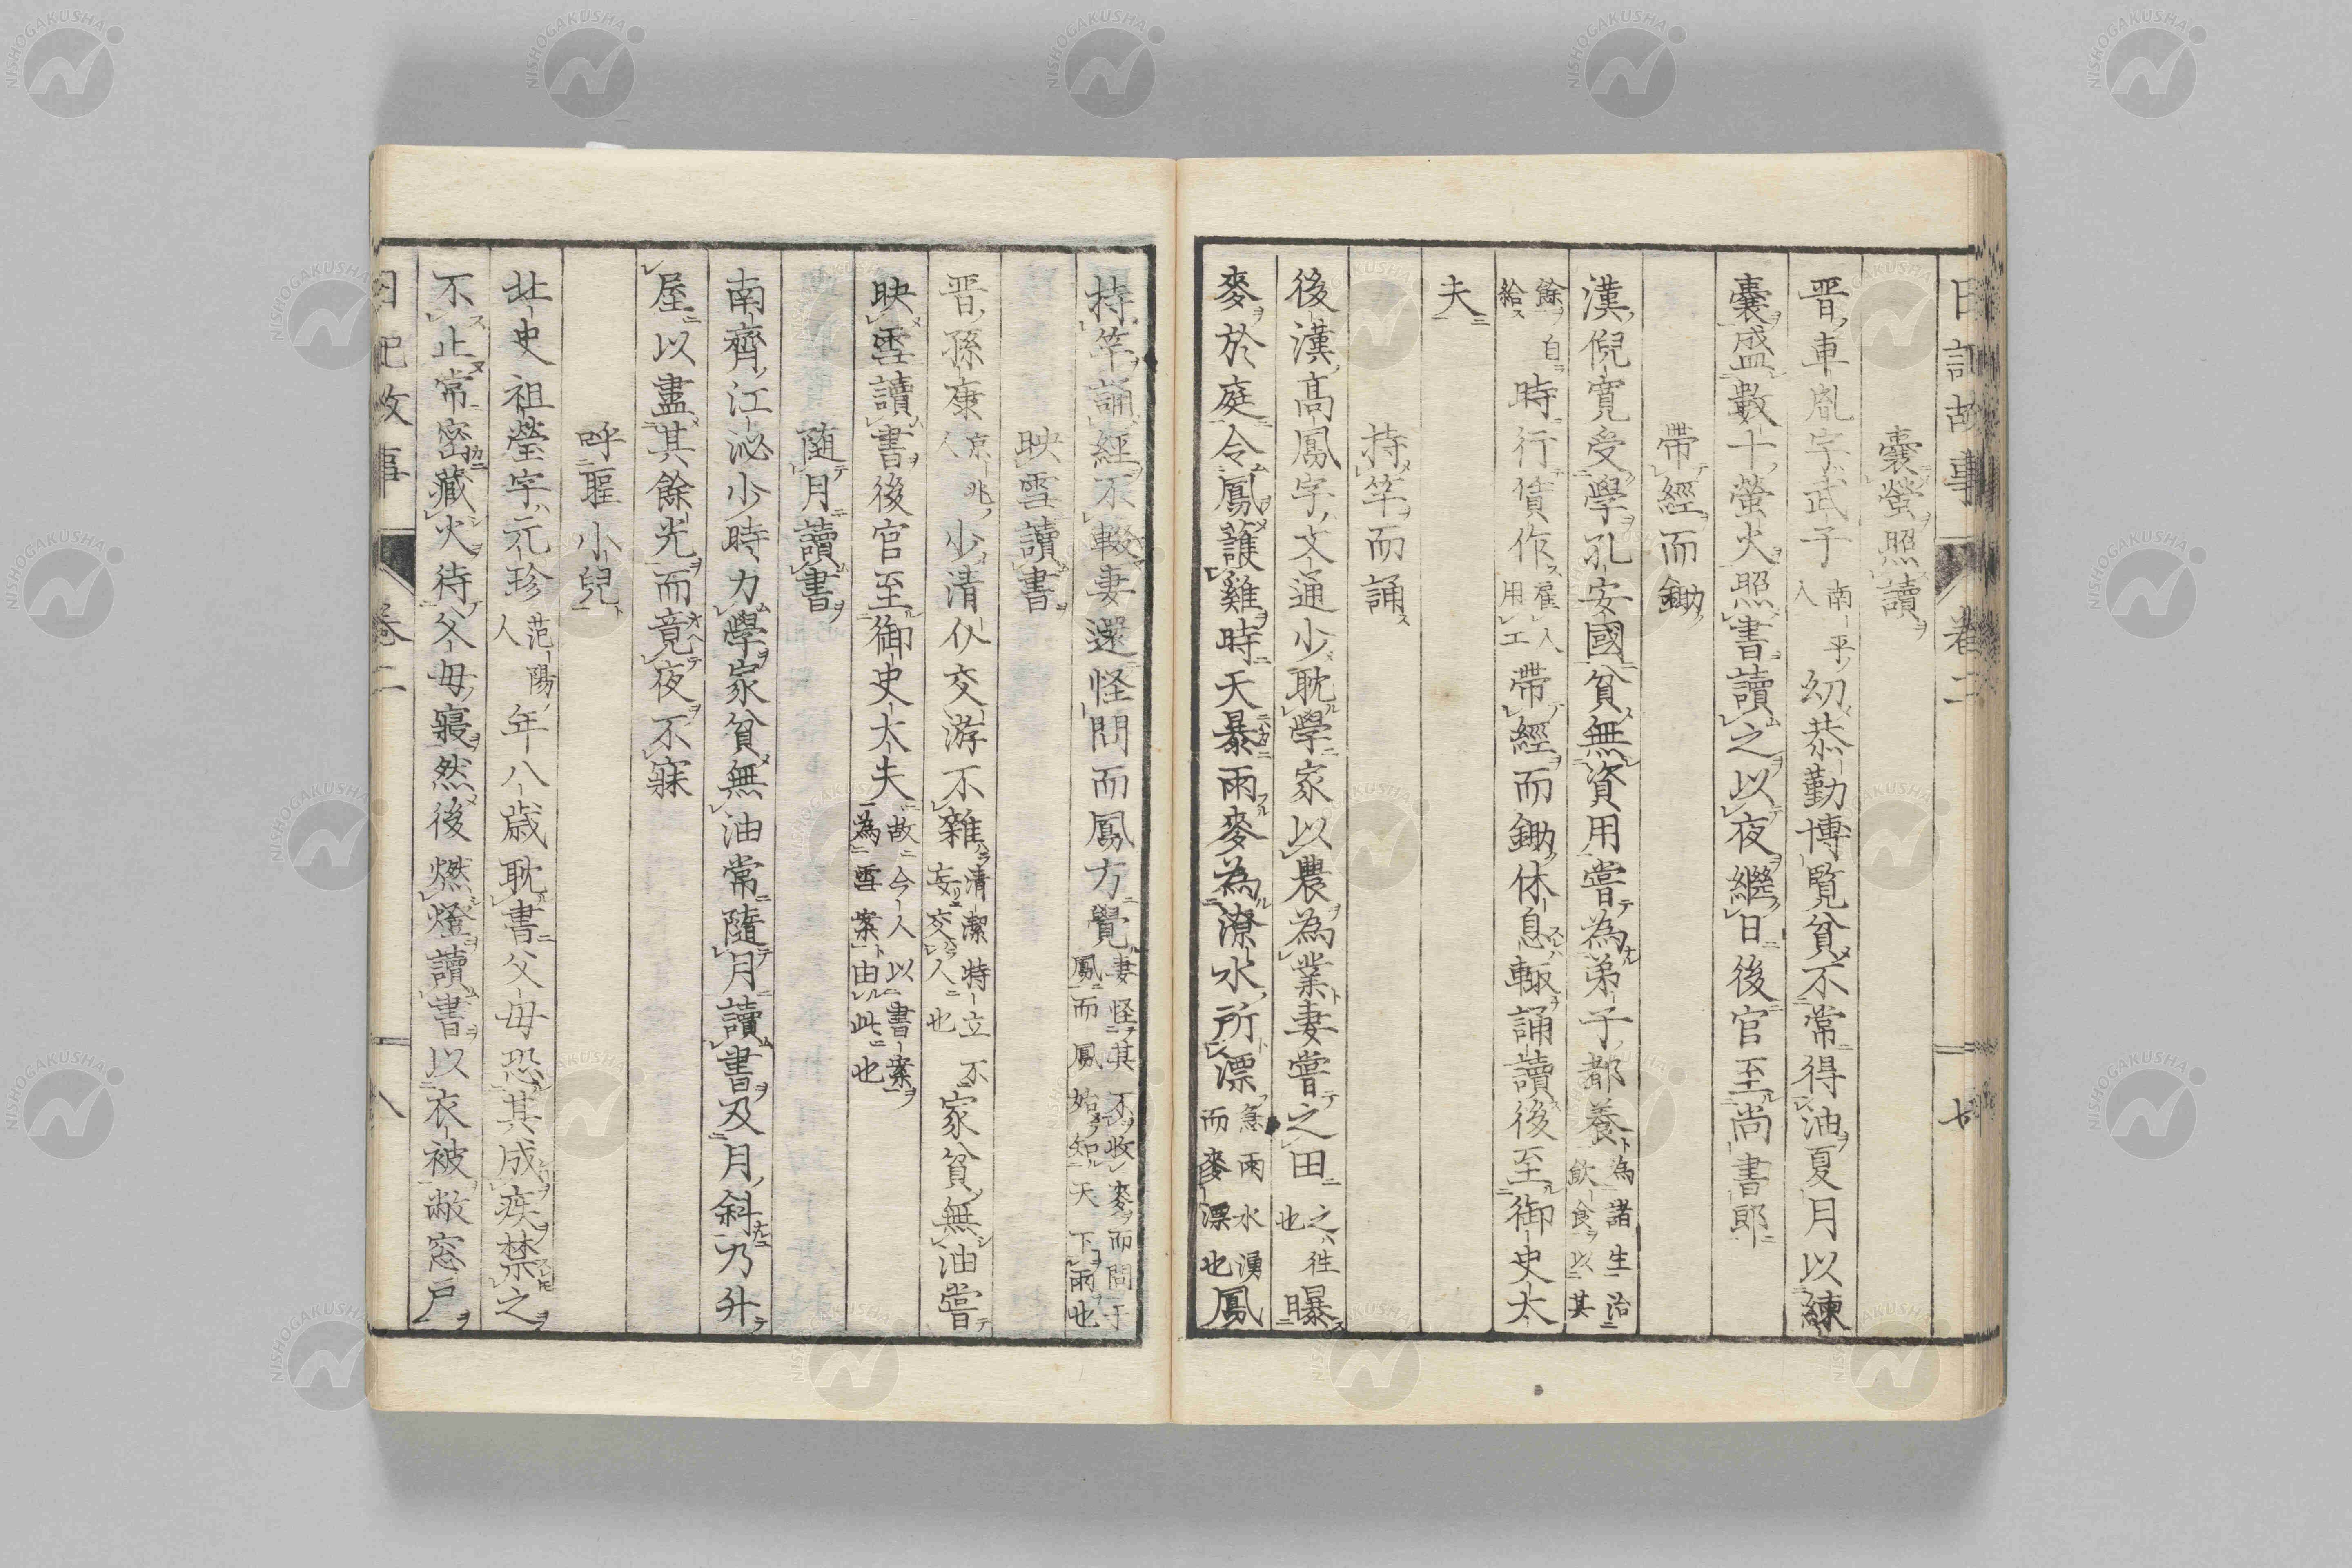 日記故事 卷二 七
囊螢照讀
晋車胤字武子南平人幼恭勤博覧貧不常得油夏月以練
囊盛數十螢火照書讀之以夜繼日後官至尚書郎
帶經而鋤
漢倪寛受學孔安國貧無資用嘗為弟子都養為諸生治飲食以其
餘自給時行賃作雇人用工帶經而鋤休息輙誦讀後至御史太
夫
持竿而誦
後漢高鳳字文通少耽學家以農為業妻嘗之田之徃也曝
麥於庭令鳳護雞時天暴雨麥為潦水所漂急雨水湧而麥漂也鳳
持竿誦經不輟妻還怪問而鳳方覺妻怪其不收麥而問于鳳而鳳始知天下雨也
映雪讀書
晋孫康京兆人少清仆交游不雜清潔特立不妄交人也家貧無油嘗
映雪讀書後官至御史大夫故今人以書案為雪案由此也
随月讀書
南齊江泌少時力學家貧無油常隨月讀書及月斜乃升
屋以盡其餘光而竟夜不寐
呼聖小兒
北史祖瑩字元珍范陽人年八歳耽書父母恐其成疾禁之
不止常密藏火待父母寢然後燃燈讀書以衣被敝窓戸
日記故事 卷二 八
NISHOGAKUSHA